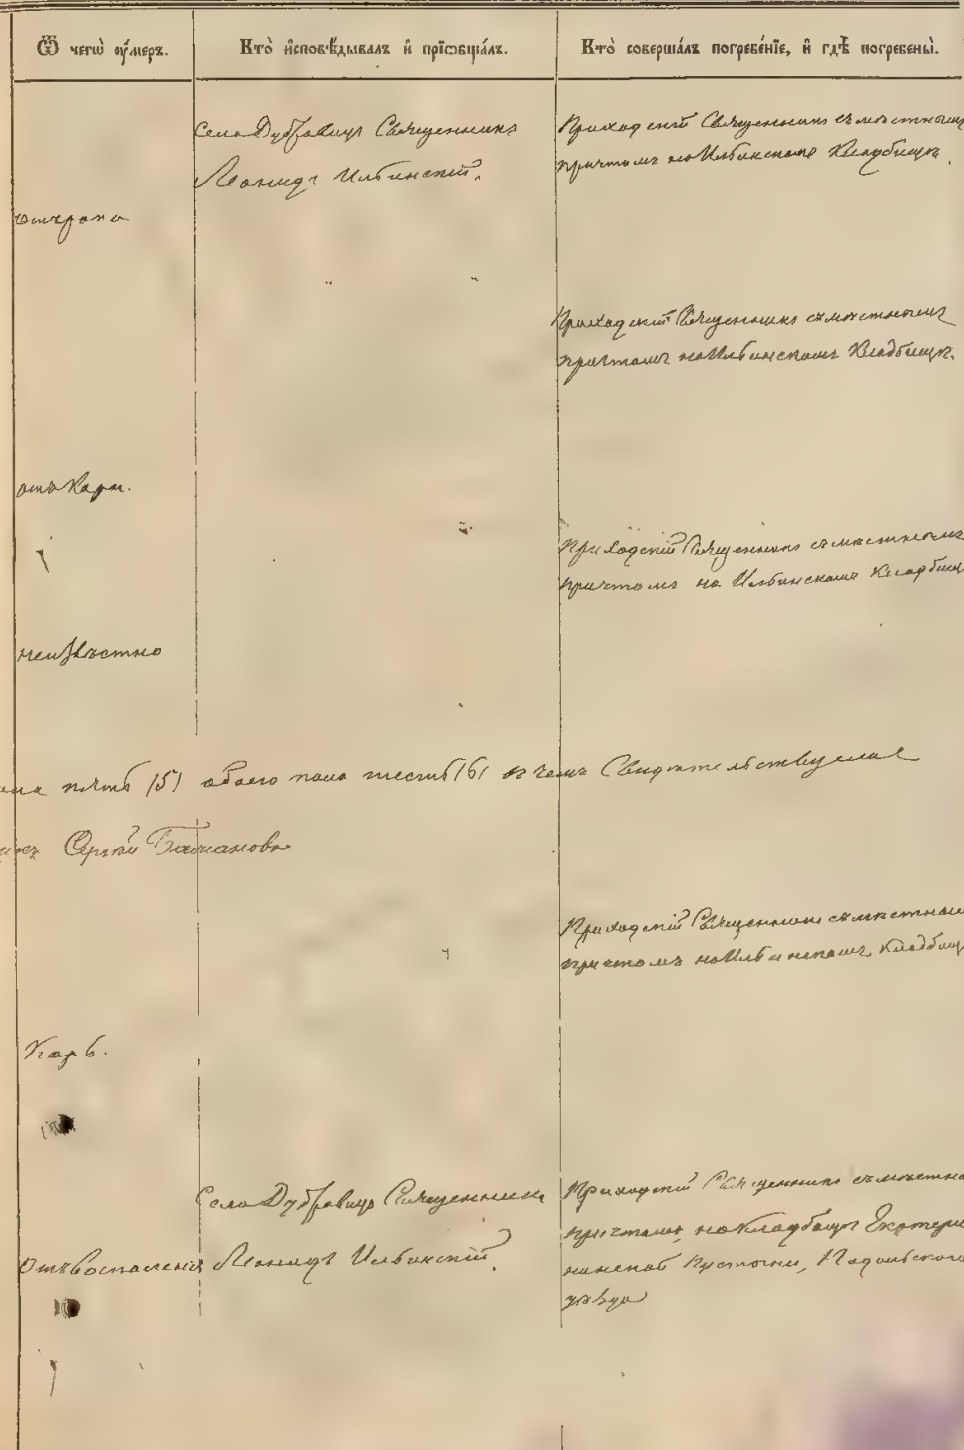 Ѿ чегѡ ᲂу҆́меръ.
Кто̀ и҆сповѣ́дывалъ и҆ прїѡбща́лъ.
Кто̀ соверша́лъ погребе́нїе, и҆ гдѣ̀ погребены̀.
Села Дубровицъ Священникъ
Леонидъ Ильинскій.
Приходскій Священникъ съ мѣстнымъ
причтомъ на Ильинскомъ Кладбищѣ.
отъ рака
Приходскій Священникъ съ мѣстнымъ
причтомъ на Ильинскомъ Кладбищѣ.
отъ Кори.
Приходскій Священникъ съ мѣстнымъ
причтомъ на Ильинскомъ Кладбищ
неизвѣстно
пять (5) обоего пола шесть (6) въ чемъ Свидѣтельствуемъ
Сергѣй
Приходскій Священникъ съ мѣстным
причтомъ на Ильинскомъ Кладбищ
Корь.
Села Дубровицъ Священникъ
Леонидъ Ильинскій.
Отъ Воспаленія
Приходскій Священникъ съ мѣстно
причтомъ, на Кладбищѣ Екатери
нинской Пустыни, Подольскаго
уѣзда